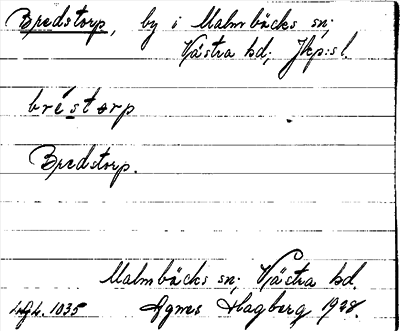 Bredstorp, by i Malmbäcks sn;
Västra hd; Jkp:sl.
bréstorp
Bredstorp.
Malmbäcks sn; Västra hd.
Agnes Hagberg 1928.